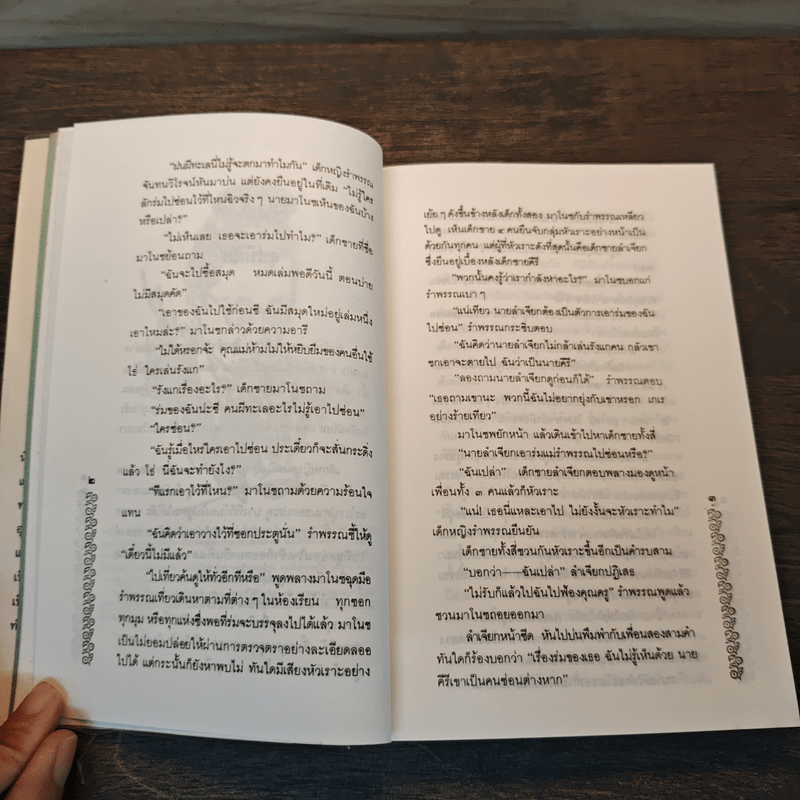 "ฝนผีทะเลนี่ไม่รู้จะตกมาทำไมกัน" เด็กหญิงรำพรรณ
จันทนวิโรจน์หันมาบ่น แต่ยังคงยืนอยู่ในที่เดิม "ไม่รู้ใคร
ลักร่มไปซ่อนไว้ที่ไหนฉิวจริง ๆ นายมาโนชเห็นของฉันบ้าง
หรือเปล่า?"
"ไม่เห็นเลย เธอจะเอาร่มไปทำไม?" เด็กชายที่ชื่อ
มาโนชย้อนถาม
"ฉันจะไปซื้อสมุด หมดเล่มพอดีวันนี้ ตอนบ่าย
ไม่มีสมุดคัด"
"เอาของฉันไปใช้ก่อนซี ฉันมีสมุดใหม่อยู่เล่มหนึ่ง
เอาไหมล่ะ?" มาโนชกล่าวด้วยความอารี
"ไม่ได้หรอกจ้ะ คุณแม่ห้ามไม่ให้หยิบยืมของคนอื่นใช้
โธ่ ใครเล่นรังแก"
"รังแกเรื่องอะไร?" เด็กชายมาโนชถาม
"ร่มของฉันน่ะซี คนผีทะเลอะไรไม่รู้เอาไปซ่อน"
"ใครซ่อน?"
"ฉันรู้เมื่อไหร่ใครเอาไปซ่อน ประเดี๋ยวก็จะสั่นกระดิ่ง
แล้ว โธ่ นี่ฉันจะทำยังไง?"
"ทีแรกเอาไว้ที่ไหน?" มาโนชถามด้วยความร้อนใจ
แทน
"ฉันคิดว่าเอาวางไว้ที่ซอกประตูนั่น" รำพรรณชี้ให้ดู
"เดี๋ยวนี้ไม่มีแล้ว"
"ไปเที่ยวค้นดูให้ทั่วอีกทีหรือ" พูดพลางมาโนชฉุดมือ
รำพรรณเที่ยวเดินหาตามที่ต่าง ๆ ในห้องเรียน ทุกซอก
ทุกมุม หรือทุกแห่งซึ่งพอที่ร่มจะบรรจุลงไปได้แล้ว มาโนช
เป็นไม่ยอมปล่อยให้ผ่านการตรวจตราอย่างละเอียดลออ
ไปได้ แต่กระนั้นก็ยังหาพบไม่ ทันใดมีเสียงหัวเราะอย่าง
๒
เย้ย ๆ ดังขึ้นข้างหลังเด็กทั้งสอง มาโนชกับรำพรรณเหลียว
ไปดู เห็นเด็กชาย ๔ คนยืนจับกลุ่มหัวเราะอย่างหน้าเป็น
ด้วยกันทุกคน แต่ผู้ที่หัวเราะดังที่สุดนั้นคือเด็กชายลำเจียก
ซึ่งยืนอยู่เบื้องหลังเด็กชายคีรี
"พวกนั้นคงรู้ว่าเรากำลังหาอะไร?" มาโนชบอกแก่
รำพรรณเบา ๆ
"แน่เทียว นายลำเจียกต้องเป็นตัวการเอาร่มของฉัน
ไปซ่อน" รำพรรณกระซิบตอบ
"ฉันคิดว่านายลำเจียกไม่กล้าเล่นรังแกคน กลัวเขา
ชกเอาจะตายไป ฉันว่าเป็นนายคีรี"
"ลองถามนายลำเจียกดูก่อนก็ได้" รำพรรณตอบ
"เธอถามเขานะ พวกนี้ฉันไม่อยากยุ่งกับเขาหรอก เกเร
อย่างร้ายเทียว"
มาโนชพยักหน้า แล้วเดินเข้าไปหาเด็กชายทั้งสี่
"นายลำเจียกเอาร่มแม่รำพรรณไปซ่อนหรือ?"
"ฉันเปล่า" เด็กชายลำเจียกตอบพลางมองดูหน้า
เพื่อนทั้ง ๓ คนแล้วก็หัวเราะ
"แน่! เธอนี่แหละเอาไป ไม่ยังงั้นจะหัวเราะทำไม"
เด็กหญิงรำพรรณยืนยัน
เด็กชายทั้งสี่ชวนกันหัวเราะขึ้นอีกเป็นคำรบสาม
"บอกว่า——ฉันเปล่า" ลำเจียกปฏิเสธ
"ไม่รับก็แล้วไปฉันไปฟ้องคุณครู" รำพรรณพูดแล้ว
ชวนมาโนชถอยออกมา
ลำเจียกหน้าซีด หันไปบ่นพึมพำกับเพื่อนสองสามคำ
ทันใดก็ร้องบอกว่า "เรื่องร่มของเธอ ฉันไม่รู้เห็นด้วย นาย
คีรีเขาเป็นคนซ่อนต่างหาก"